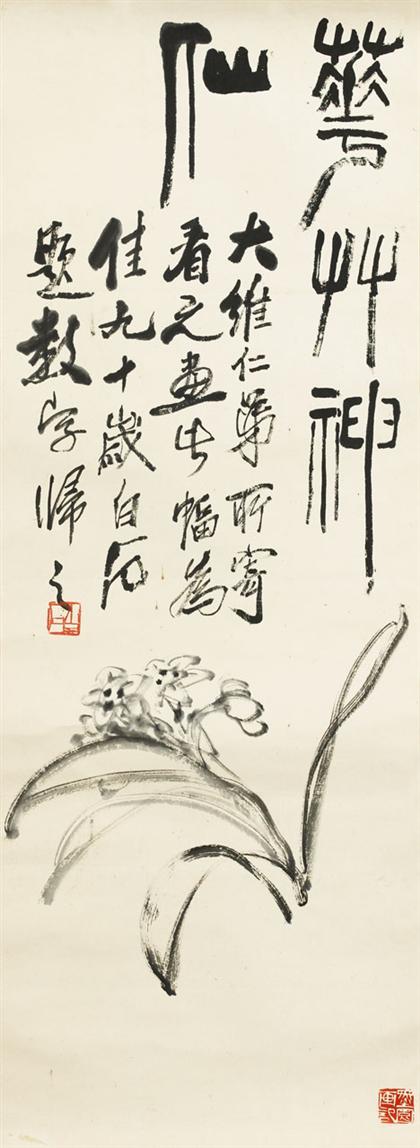 華艸神
仙
大維仁弟所寄
看之畫此幅為
佳九十歲白石
題數字歸之